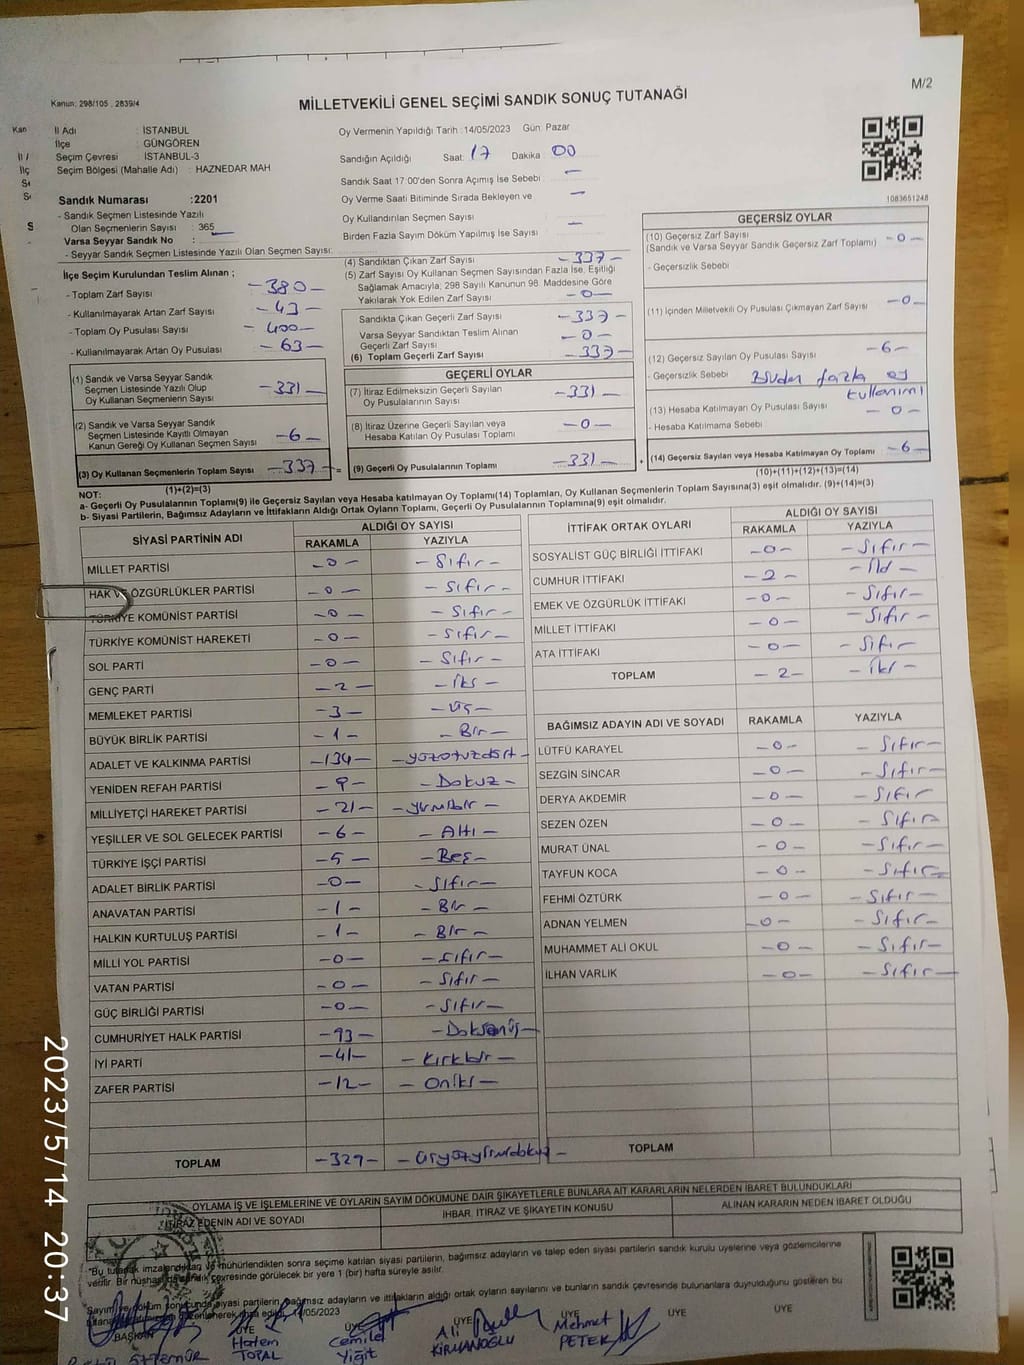 Kanun: 298/105 , 2839/4
M/2
MİLLETVEKİLİ GENEL SEÇİMİ SANDIK SONUÇ TUTANAĞI
İl Adı : İSTANBUL
İlçe : GÜNGÖREN
Seçim Çevresi : İSTANBUL-3
Seçim Bölgesi (Mahalle Adı) : HAZNEDAR MAH
Sandık Numarası :2201
- Sandık Seçmen Listesinde Yazılı
Olan Seçmenlerin Sayısı : 365
Varsa Seyyar Sandık No :
- Seyyar Sandık Seçmen Listesinde Yazılı Olan Seçmen Sayısı:
Oy Vermenin Yapıldığı Tarih :14/05/2023 Gün: Pazar
Sandığın Açıldığı Saat: 17 Dakika 00
Sandık Saat 17:00'den Sonra Açılmış İse Sebebi —
Oy Verme Saati Bitiminde Sırada Bekleyen ve
Oy Kullandırılan Seçmen Sayısı —
Birden Fazla Sayım Döküm Yapılmış İse Sayısı —
1083651248
İlçe Seçim Kurulundan Teslim Alınan ;
- Toplam Zarf Sayısı -380-
- Kullanılmayarak Artan Zarf Sayısı -43-
- Toplam Oy Pusulası Sayısı -400-
- Kullanılmayarak Artan Oy Pusulası -63-
(1) Sandık ve Varsa Seyyar Sandık
Seçmen Listesinde Yazılı Olup
Oy Kullanan Seçmenlerin Sayısı -331-
(2) Sandık ve Varsa Seyyar Sandık
Seçmen Listesinde Kayıtlı Olmayan
Kanun Gereği Oy Kullanan Seçmen Sayısı -6-
(3) Oy Kullanan Seçmenlerin Toplam Sayısı -337-
(1)+(2)=(3)
(4) Sandıktan Çıkan Zarf Sayısı -337-
(5) Zarf Sayısı Oy Kullanan Seçmen Sayısından Fazla İse, Eşitliği
Sağlamak Amacıyla, 298 Sayılı Kanunun 98. Maddesine Göre
Yakılarak Yok Edilen Zarf Sayısı -0-
Sandıkta Çıkan Geçerli Zarf Sayısı -337-
Varsa Seyyar Sandıktan Teslim Alınan
Geçerli Zarf Sayısı -0-
(6) Toplam Geçerli Zarf Sayısı -337-
GEÇERLİ OYLAR
(7) İtiraz Edilmeksizin Geçerli Sayılan
Oy Pusulalarının Sayısı -331-
(8) İtiraz Üzerine Geçerli Sayılan veya
Hesaba Katılan Oy Pusulası Toplamı -0-
= (9) Geçerli Oy Pusulalarının Toplamı -331-
GEÇERSİZ OYLAR
(10) Geçersiz Zarf Sayısı
(Sandık ve Varsa Seyyar Sandık Geçersiz Zarf Toplamı) -0-
- Geçersizlik Sebebi
(11) İçinden Milletvekili Oy Pusulası Çıkmayan Zarf Sayısı -0-
(12) Geçersiz Sayılan Oy Pusulası Sayısı -6-
- Geçersizlik Sebebi Birden fazla oy
kullanımı
(13) Hesaba Katılmayan Oy Pusulası Sayısı -0-
- Hesaba Katılmama Sebebi
+ (14) Geçersiz Sayılan veya Hesaba Katılmayan Oy Toplamı -6-
(10)+(11)+(12)+(13)=(14)
NOT:
a- Geçerli Oy Pusulalarının Toplamı(9) ile Geçersiz Sayılan veya Hesaba katılmayan Oy Toplamı(14) Toplamları, Oy Kullanan Seçmenlerin Toplam Sayısına(3) eşit olmalıdır. (9)+(14)=(3)
b- Siyasi Partilerin, Bağımsız Adayların ve İttifakların Aldığı Ortak Oyların Toplamı, Geçerli Oy Pusulalarının Toplamına(9) eşit olmalıdır.
SİYASİ PARTİNİN ADI ALDIĞI OY SAYISI
RAKAMLA YAZIYLA
MİLLET PARTİSİ -0- -Sıfır-
HAK VE ÖZGÜRLÜKLER PARTİSİ -0- -Sıfır-
TÜRKİYE KOMÜNİST PARTİSİ -0- -Sıfır-
TÜRKİYE KOMÜNİST HAREKETİ -0- -Sıfır-
SOL PARTİ -0- -Sıfır-
GENÇ PARTİ -2- -İki-
MEMLEKET PARTİSİ -3- -Üç-
BÜYÜK BİRLİK PARTİSİ -1- -Bir-
ADALET VE KALKINMA PARTİSİ -134- -yüzotuzdört-
YENİDEN REFAH PARTİSİ -9- -Dokuz-
MİLLİYETÇİ HAREKET PARTİSİ -21- -yirmibir-
YEŞİLLER VE SOL GELECEK PARTİSİ -6- -Altı-
TÜRKİYE İŞÇİ PARTİSİ -5- -Beş-
ADALET BİRLİK PARTİSİ -0- -Sıfır-
ANAVATAN PARTİSİ -1- -Bir-
HALKIN KURTULUŞ PARTİSİ -1- -Bir-
MİLLİ YOL PARTİSİ -0- -Sıfır-
VATAN PARTİSİ -0- -Sıfır-
GÜÇ BİRLİĞİ PARTİSİ -0- -Sıfır-
CUMHURİYET HALK PARTİSİ -93- -Doksanüç-
İYİ PARTİ -41- -Kırkbir-
ZAFER PARTİSİ -12- -Oniki-
TOPLAM -329- -üçyüzyirmidokuz-
İTTİFAK ORTAK OYLARI ALDIĞI OY SAYISI
RAKAMLA YAZIYLA
SOSYALİST GÜÇ BİRLİĞİ İTTİFAKI -0- -Sıfır-
CUMHUR İTTİFAKI -2- -İki-
EMEK VE ÖZGÜRLÜK İTTİFAKI -0- -Sıfır-
MİLLET İTTİFAKI -0- -Sıfır-
ATA İTTİFAKI -0- -Sıfır-
TOPLAM -2- -İki-
BAĞIMSIZ ADAYIN ADI VE SOYADI RAKAMLA YAZIYLA
LÜTFÜ KARAYEL -0- -Sıfır-
SEZGİN SİNCAR -0- -Sıfır-
DERYA AKDEMİR -0- -Sıfır-
SEZEN ÖZEN -0- -Sıfır-
MURAT ÜNAL -0- -Sıfır-
TAYFUN KOCA -0- -Sıfır-
FEHMİ ÖZTÜRK -0- -Sıfır-
ADNAN YELMEN -0- -Sıfır-
MUHAMMET ALİ OKUL -0- -Sıfır-
İLHAN VARLIK -0- -Sıfır-
TOPLAM
OYLAMA İŞ VE İŞLEMLERİNE VE OYLARIN SAYIM DÖKÜMÜNE DAİR ŞİKAYETLERLE BUNLARA AİT KARARLARIN NELERDEN İBARET BULUNDUKLARI
İTİRAZ EDENİN ADI VE SOYADI İHBAR, İTİRAZ VE ŞİKAYETİN KONUSU ALINAN KARARIN NEDEN İBARET OLDUĞU
"Bu tutanak imzalandıktan ve mühürlendikten sonra seçime katılan siyasi partilerin, bağımsız adayların ve talep eden siyasi partilerin sandık kurulu üyelerine veya gözlemcilerine
verilir. Bir nüshası da sandık çevresinde görülecek bir yere 1 (bir) hafta süreyle asılır.
Sayım ve döküm sonucunda siyasi partilerin, bağımsız adayların ve ittifakların aldığı ortak oyların sayılarını ve bunların sandık çevresinde bulunanlara duyrulduğunu gösteren bu
14/05/2023
BAŞKAN ÜYE ÜYE ÜYE ÜYE ÜYE ÜYE
Hatem TOPAL
Cemile Yiğit
Ali KİRMANOĞLU
Mehmet PETEK
2023/5/14 20:37